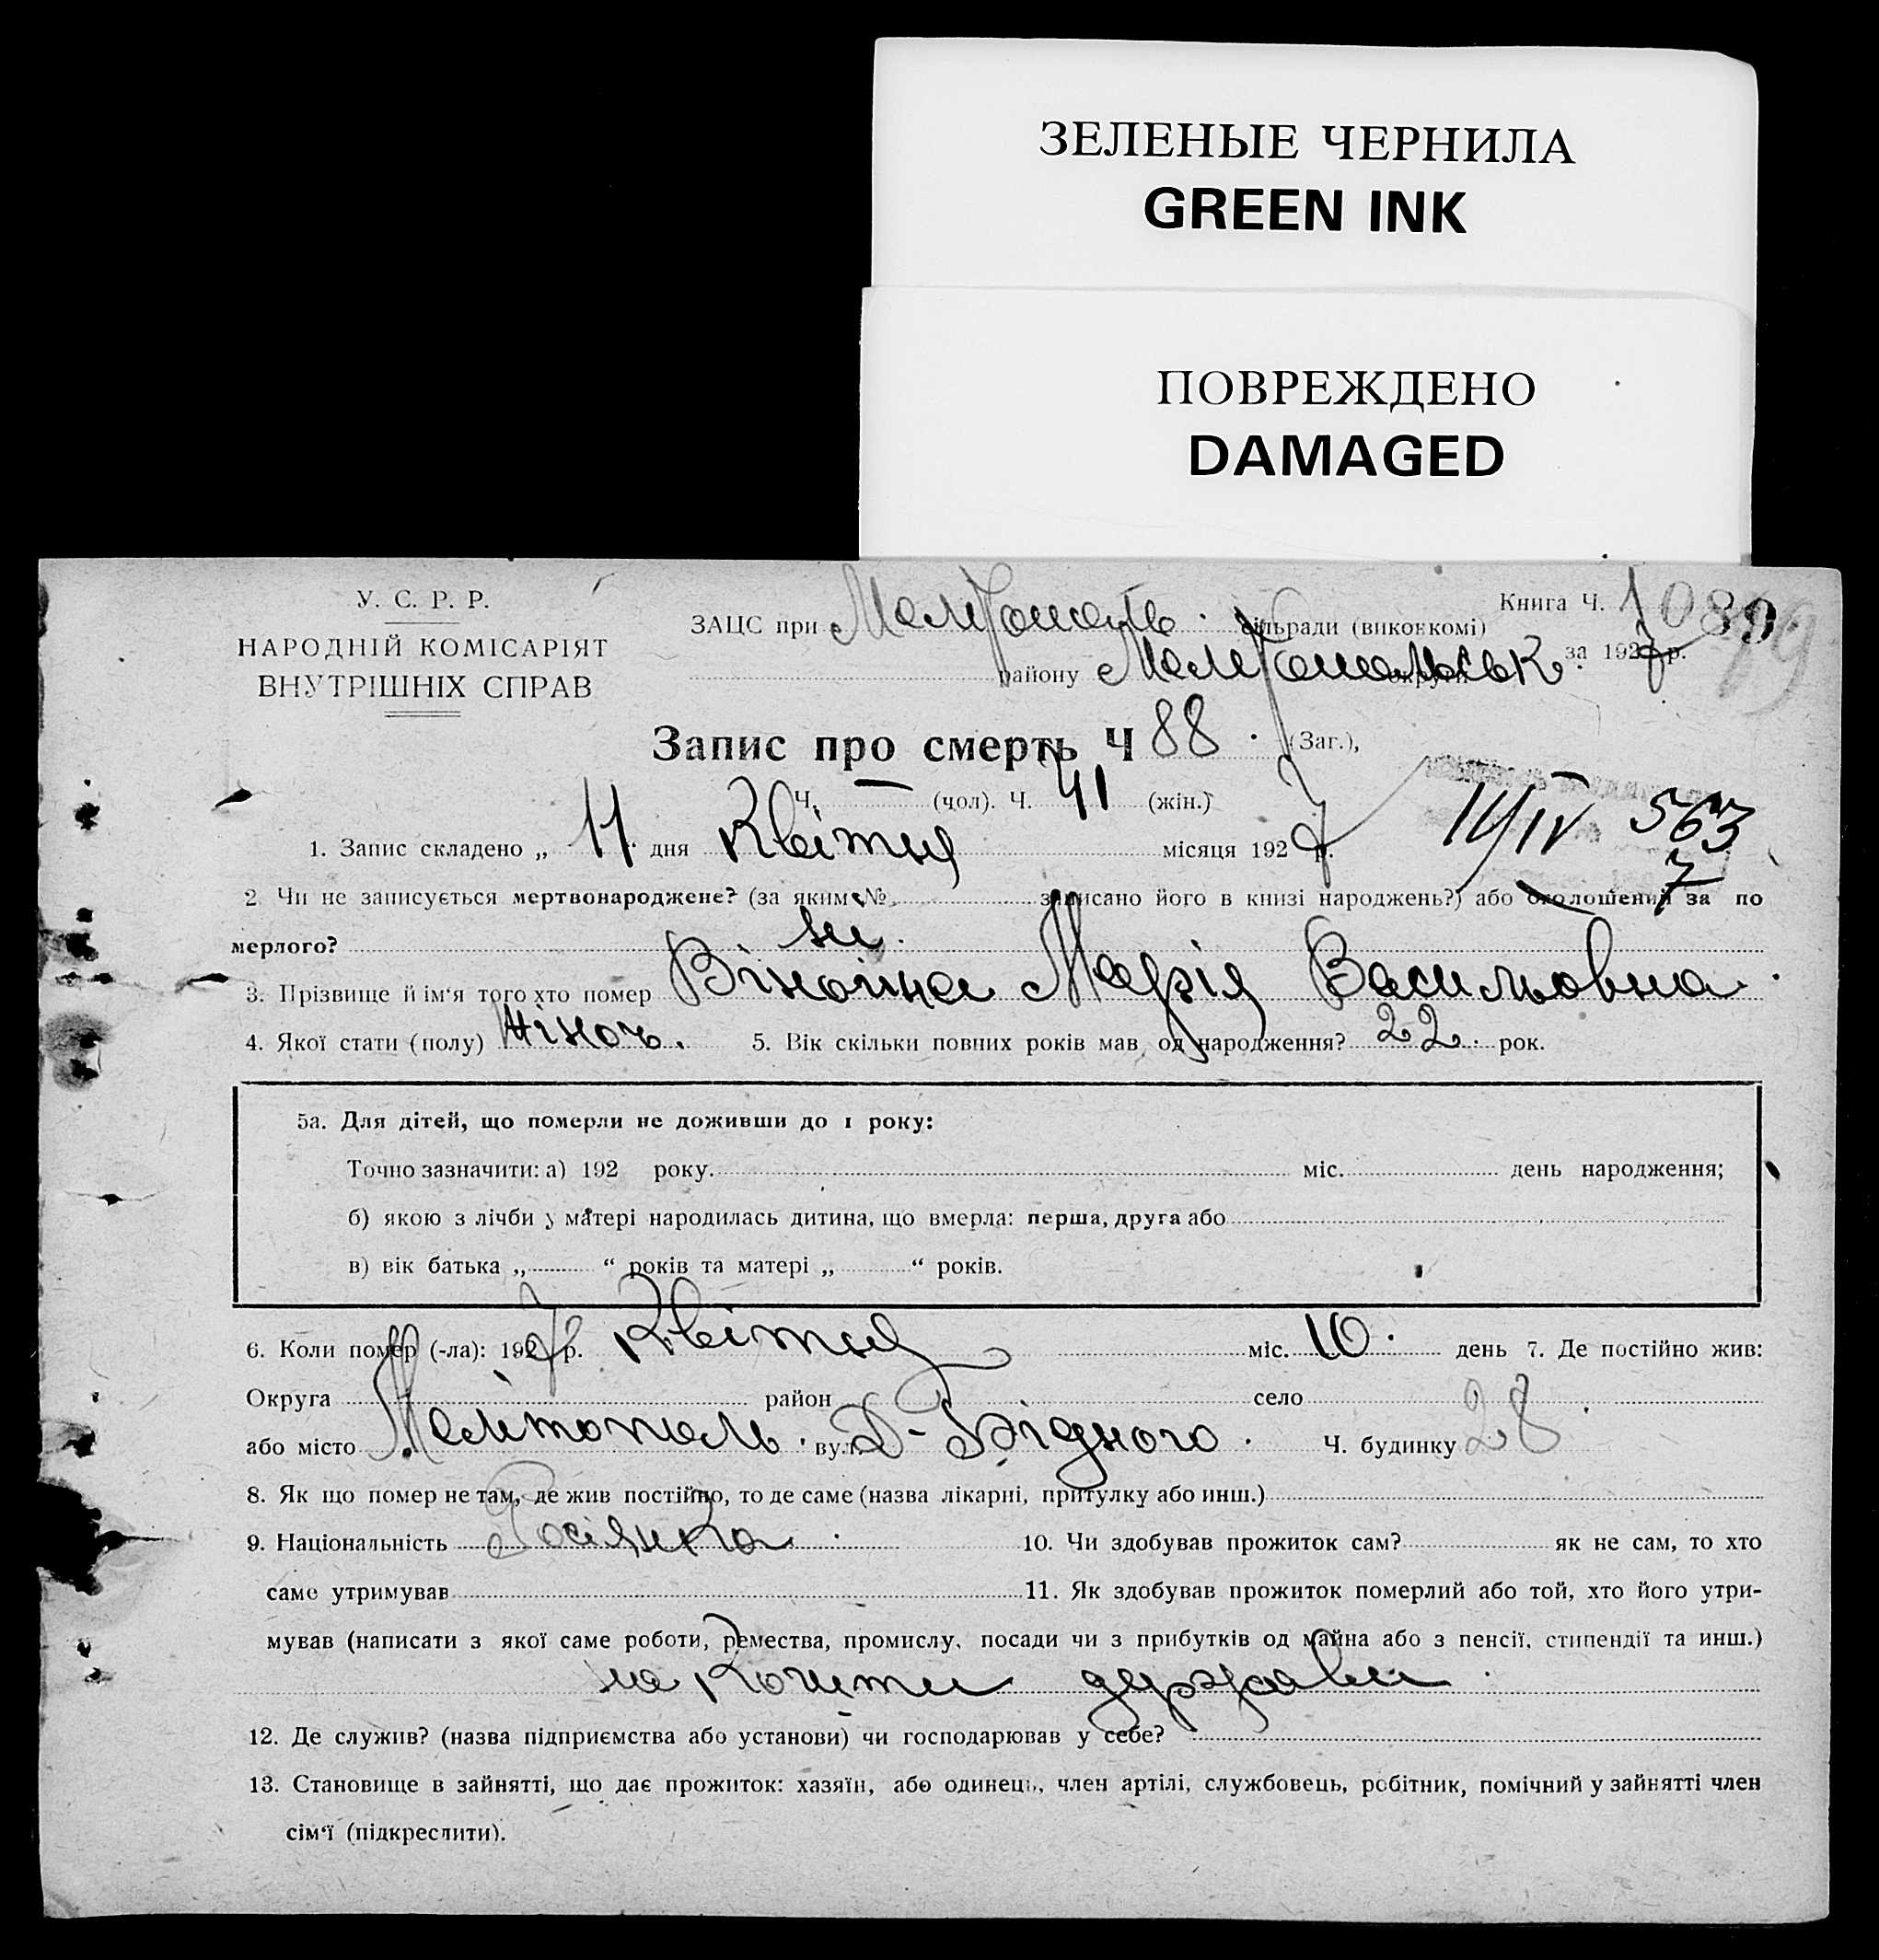 ЗЕЛЕНЫЕ ЧЕРНИЛА
GREEN INK
ПОВРЕЖДЕНО
DAMAGED
У. С. Р. Р.
НАРОДНІЙ КОМІСАРІЯТ
ВНУТРІШНІХ СПРАВ
Книга Ч. 1
ЗАЦС при сільради (виконкомі)
за 1927 р.
району Мелітопольськ. округи
Запис про смерть Ч 88. (Заг.),
Ч. — (чол). Ч. 41 (жін.)
1. Запис складено „ 11 дня Квітня місяця 1927 р.
14/IV 563
7
2 Чи не записується мертвонароджене? (за яким № записано його в книзі народжень?) або оголошений за по
мерлого? ні.
3. Прізвище й ім'я того хто помер Марія Васильовна.
4. Якої стати (полу) жіноч. 5. Вік скільки повних років мав од народження? 22. рок.
5а. Для дітей, що померли не доживши до 1 року:
Точно зазначити: а) 192 року. міс. день народження;
б) якою з лічби у матері народилась дитина, що вмерла: перша, друга або
в) вік батька „ “ років та матері „ “ років.
6. Коли помер (-ла): 1927 р. Квітня міс. 10. день 7. Де постійно жив:
Округа район село
або місто Мелітополь. вул. Д-Бідного. Ч. будинку 28
8. Як що помер не там, де жив постійно, то де саме (назва лікарні, притулку або инш.)
9. Національність Росіянка. 10. Чи здобував прожиток сам? як не сам, то хто
саме утримував 11. Як здобував прожиток померлий або той, хто його утри-
мував (написати з якої саме роботи, ремества, промислу, посади чи з прибутків од майна або з пенсії, стипендії та инш.)
на кошти держави.
12. Де служив? (назва підприємства або установи) чи господарював у себе?
13. Становище в зайнятті, що дає прожиток: хазяїн, або одинець, член артілі, службовець, робітник, помічний у зайнятті член
сім'ї (підкреслити).